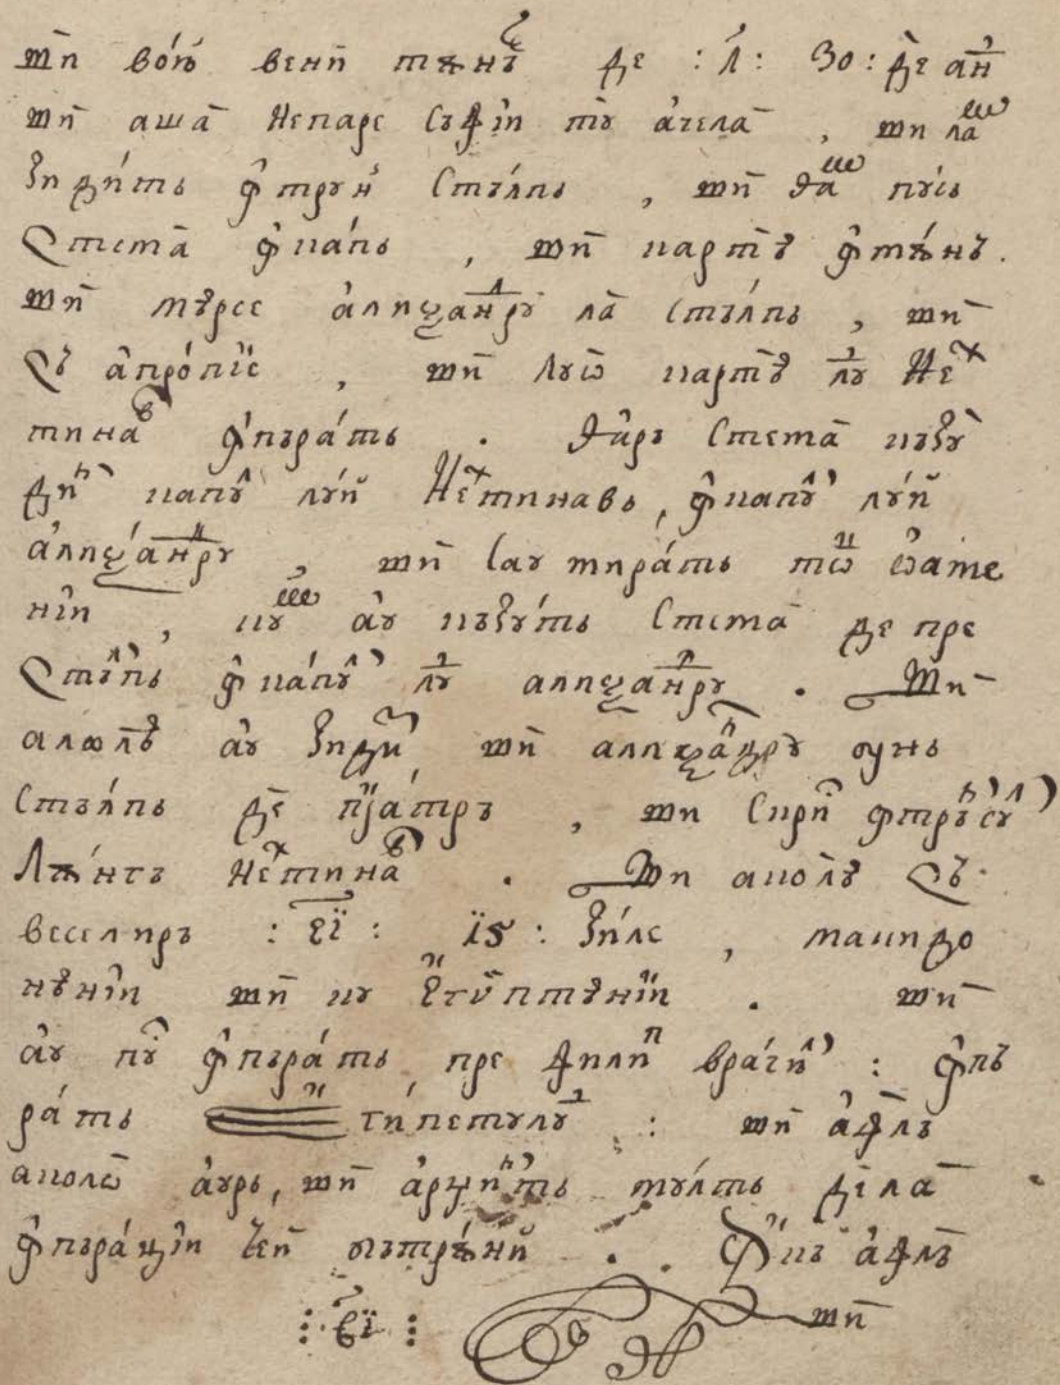 ши вою вени тѫнъ̆р де : л : зо : де ан
ши аша непаре съфїи ту ачела , ши лаш
зидить ꙟтрꙋн стълпь , ши даш пꙋсь
стема ꙟкапь , ши карте ꙟмѫнъ .
ши мѣрсе алиѯандрꙋ ла стълпь , ши
съ апропїе , ши лꙋѡ карте лꙋ нех
тинав ꙟпърать . даръ стема къзꙋ
дин капꙋл лꙋй нехтинавь , ꙟкапꙋл лꙋй
алиѯандрꙋ , ши саꙋ мирать тѡц ѡаме
нїи , кꙋш аꙋ къзꙋть стема де пре
стълпь ꙟкапꙋл лꙋ алиѯандрꙋ . ши
аколѣ аꙋ зидит ши алиѯандрꙋ ꙋнь
стълпь де пїатръ , ши скри ꙟтрънсꙋл
лѫнгъ нехтинав . ши аколѣ съ
веселиръ : еї : їѕ : зиле , макидо
нѣнїи ши кꙋ егѷптѣнїи . ши
аꙋ пꙋс ꙟпърать пре филип врачюл : ꙟпъ
рать гипетꙋлꙋ : ши афлъ
аколѡ аꙋрь , ши арџинть мꙋлть дела
ꙟпърацїи чей бътрѫнй . . фїкъ афлъ
: еї : ши